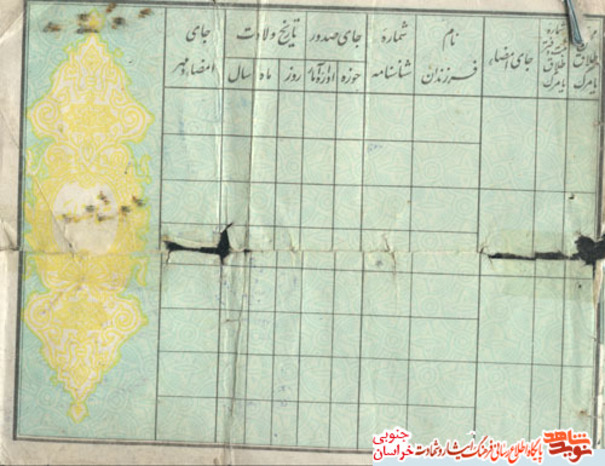 نام
فرزندان
شمارهٔ
شناسنامه
جای صدور
حوزه
تاریخ ولادت
روز
ماه
سال
جای
امضاء و مهر
جای امضاء
طلاق
یا مرگ
شماره
طلاق
یا مرگ
نوید شاهد
پایگاه اطلاع رسانی فرهنگ ایثار و شهادت
خراسان جنوبی